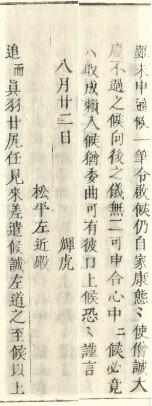 雖未申通候一筆令啟候仍自家康態〻使僧誠大
慶不過之候向後之儀無二可申合心中ニ候必竟
八取成賴入候猶委曲可有彼口上候恐〻謹言
八月廿二日 輝虎
松平左近殿
追而眞羽廿尻任見來差遣候誠左道之至候以上